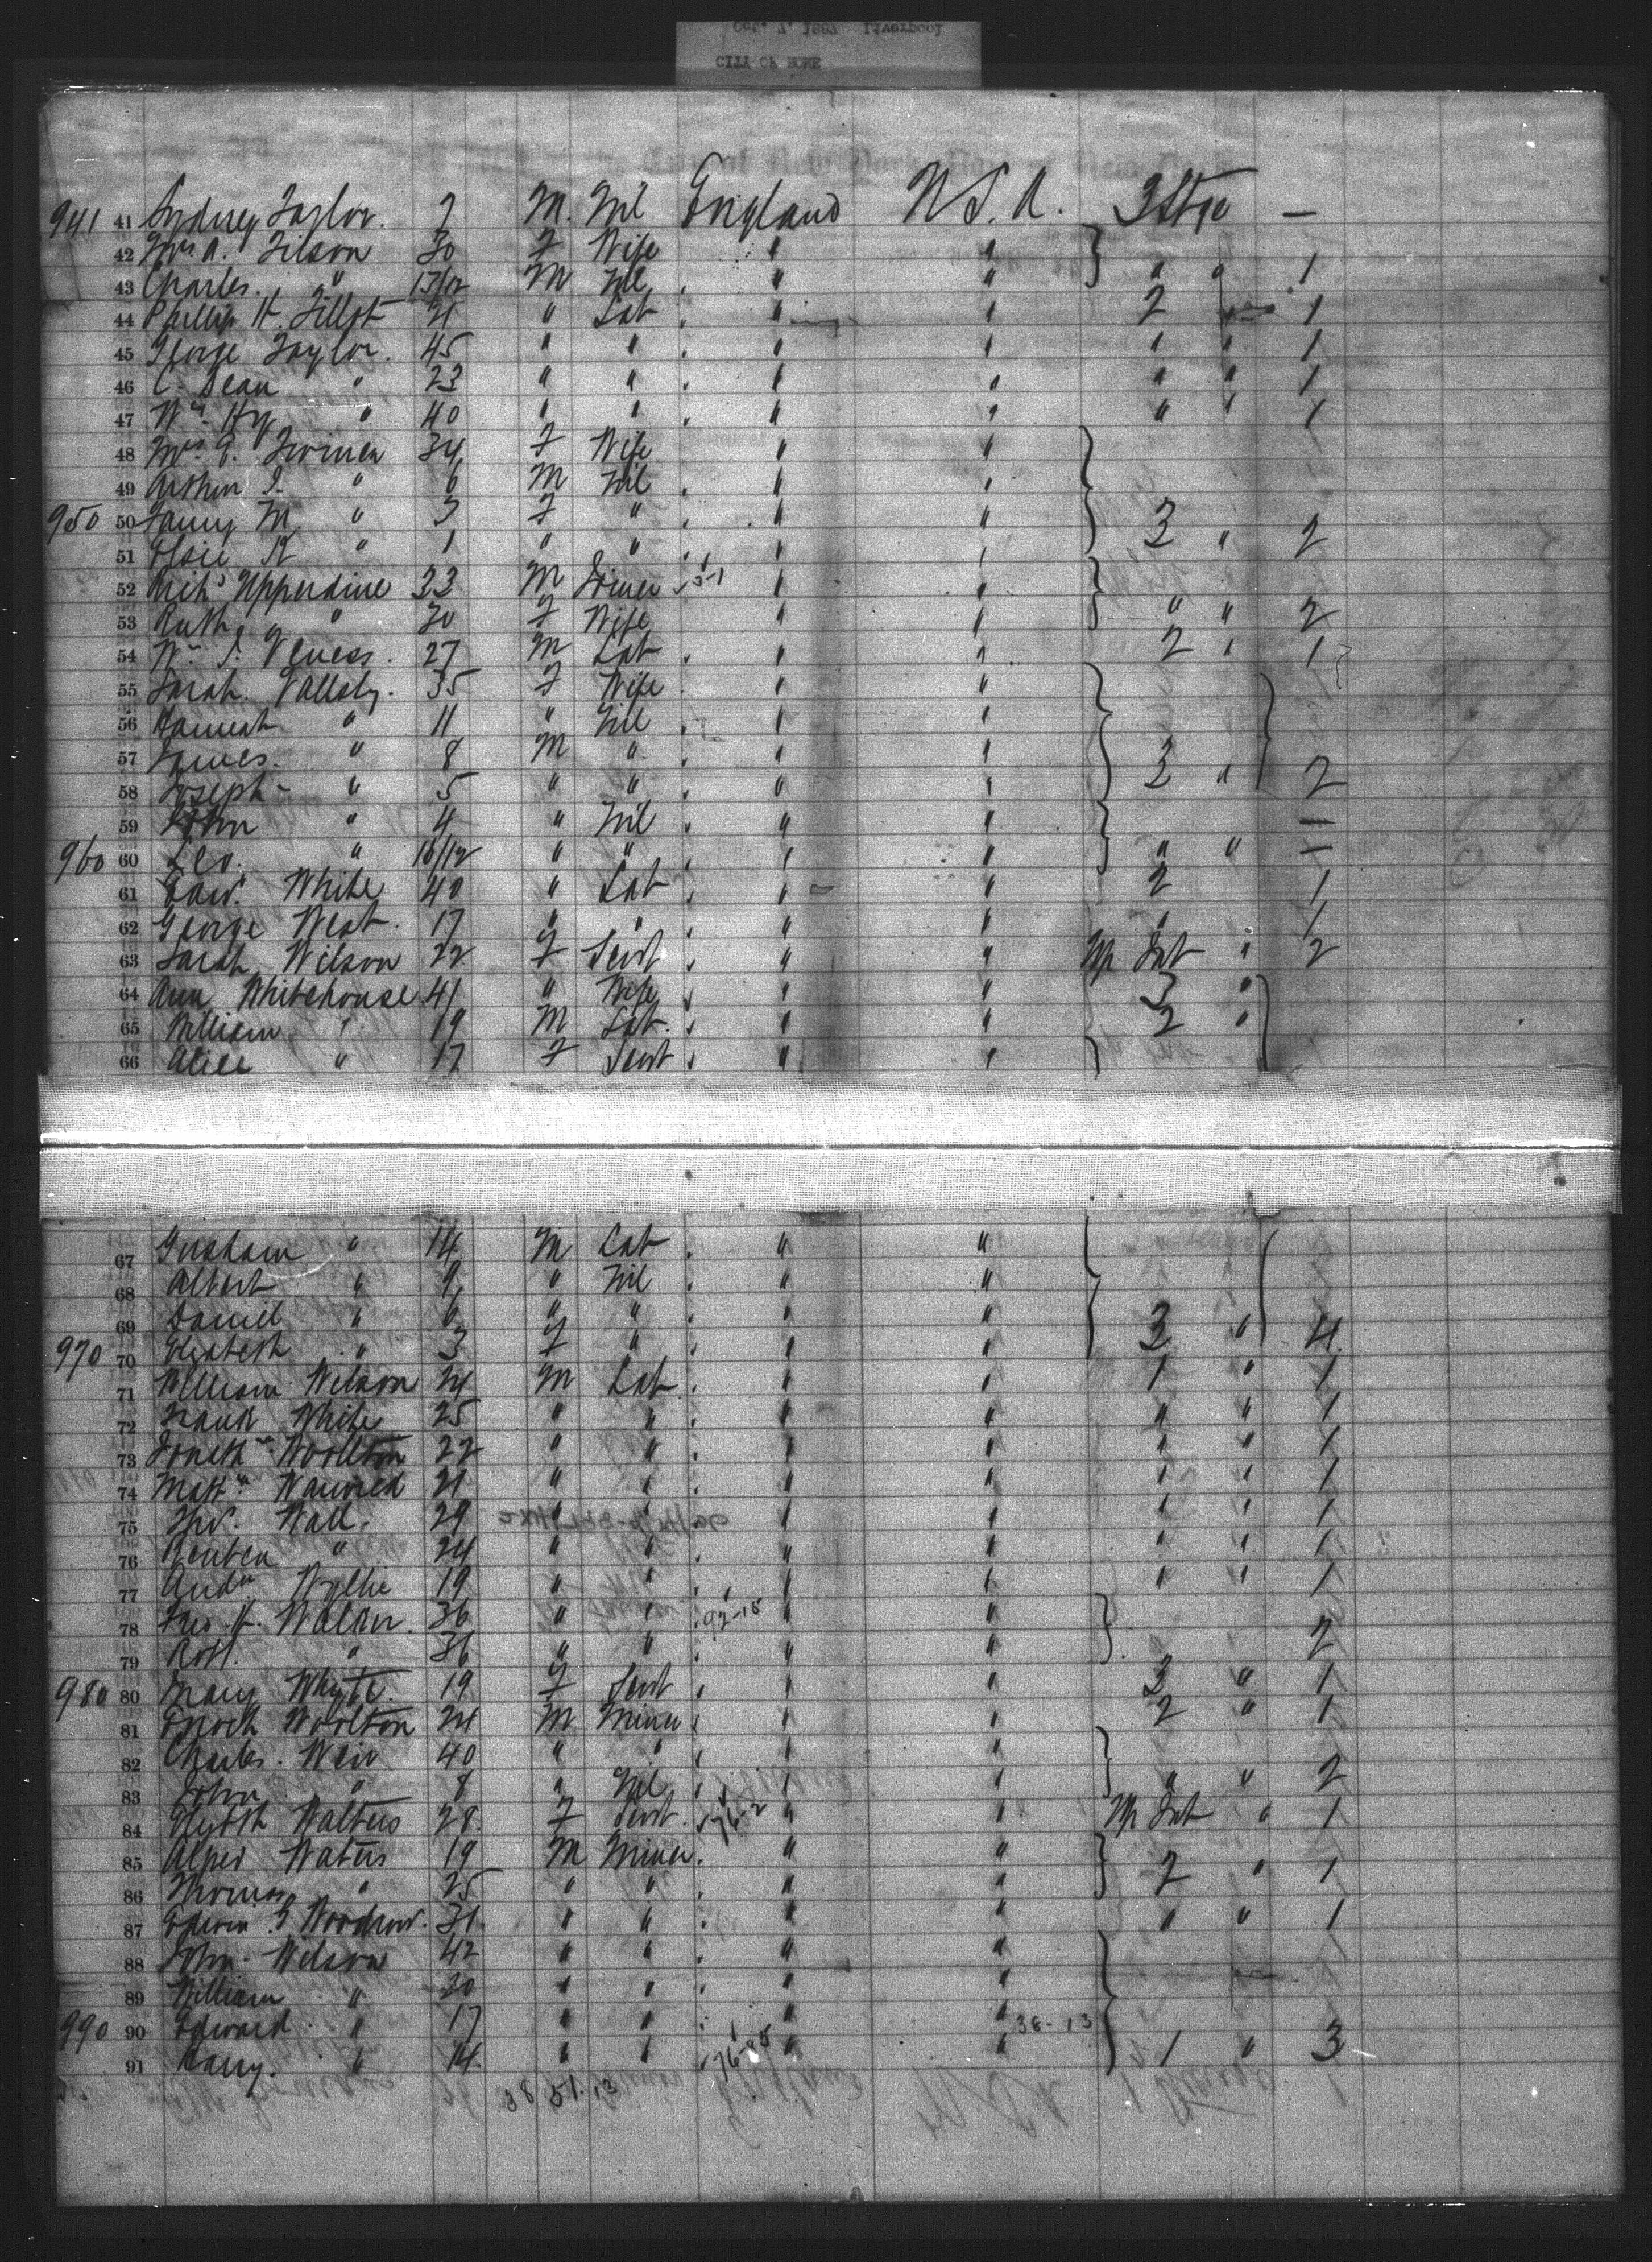 Oct. 7. 1887 Liverpool
CITY OF ROME
941 41 Sydney Taylor. 7 M. Nil England U.S.A. 3 Stge —
42 Mrs A. Tilson 30 F Wife " "
43 Charles. " 13/12 M Nil " " " " 1
44 Phillip H. Tillot 21 " Lab " " 2 " 1
45 George Taylor. 45 " " " " " " 1
46 C. Dean " 23 " " " " " " 1
47 Wm Hy " 40 " " " " " " 1
48 Mrs E. 34 F Wife " "
49 Arthur J. " 6 M Nil " "
950 50 Fanny M. " 3 F " " " 3 " 2
51 Elsie " 1 " " " "
52 Richd Upperdine 33 M Joiner " "
53 Ruth " 30 F Wife " " " " 2
54 Wm J. Veness. 27 M Lab " " 2 " 1
55 Sarah Vallsly. 35 F Wife " "
56 Hannah " 11 " Nil " "
57 James. " 8 M " " "
58 Joseph " 5 " " " " 3 " 2
59 John " 4 " Nil " " —
960 60 Leo. " 10/12 " " " " " " —
61 Edw. White 40 " Lab " " 2 1
62 George West. 17 " " " " " 1
63 Sarah Wilson 22 F Servt " " " 2
64 Ann Whitehouse 41 " Wife " " 3 "
65 William " 19 M Lab. " " 2 "
66 Alice " 17 F Servt " "
67 Graham " 14 M Lab " "
68 Albert " 9 " Nil " "
69 Daniel " 6 " " " "
970 70 Elizabeth " 3 F " " " 3 " 4
71 William Wilson 24 M Lab " " 1 " 1
72 Frank White 25 " " " " " " 1
73 Jonathn Woolton 22 " " " " " " 1
74 Mattw Warwick 21 " " " " " " 1
75 Wall. 29 " " " " " " 1
76 Reuben " 24 " " " " " " 1
77 Andw Wyllie 19 " " " " " " 1
78 Jno. H. Walker. 36 " " 92-15 " "
79 Robt. " 36 " " " " 2
980 80 Mary Whyte. 19 F Servt " " 3 " 1
81 Enoch Woolton 24 M Miner " " 2 " 1
82 Charles. Weir 40 " " " "
83 John " 8 " Nil " " " " 2
84 Elizbth Walters 28. F Servt. 76-2 " " " 1
85 Alfred Waters 19 M Miner " "
86 Thomas " 25 " " " " 2 " 1
87 Edwin G Woodrow. 31 " " " " " " 1
88 John Wilson 42 " " " "
89 William " 30 " " " "
990 90 Edward " 17 " " " " 36-13
91 Harry. " 14 " " " " 1 " 3
38 51.13